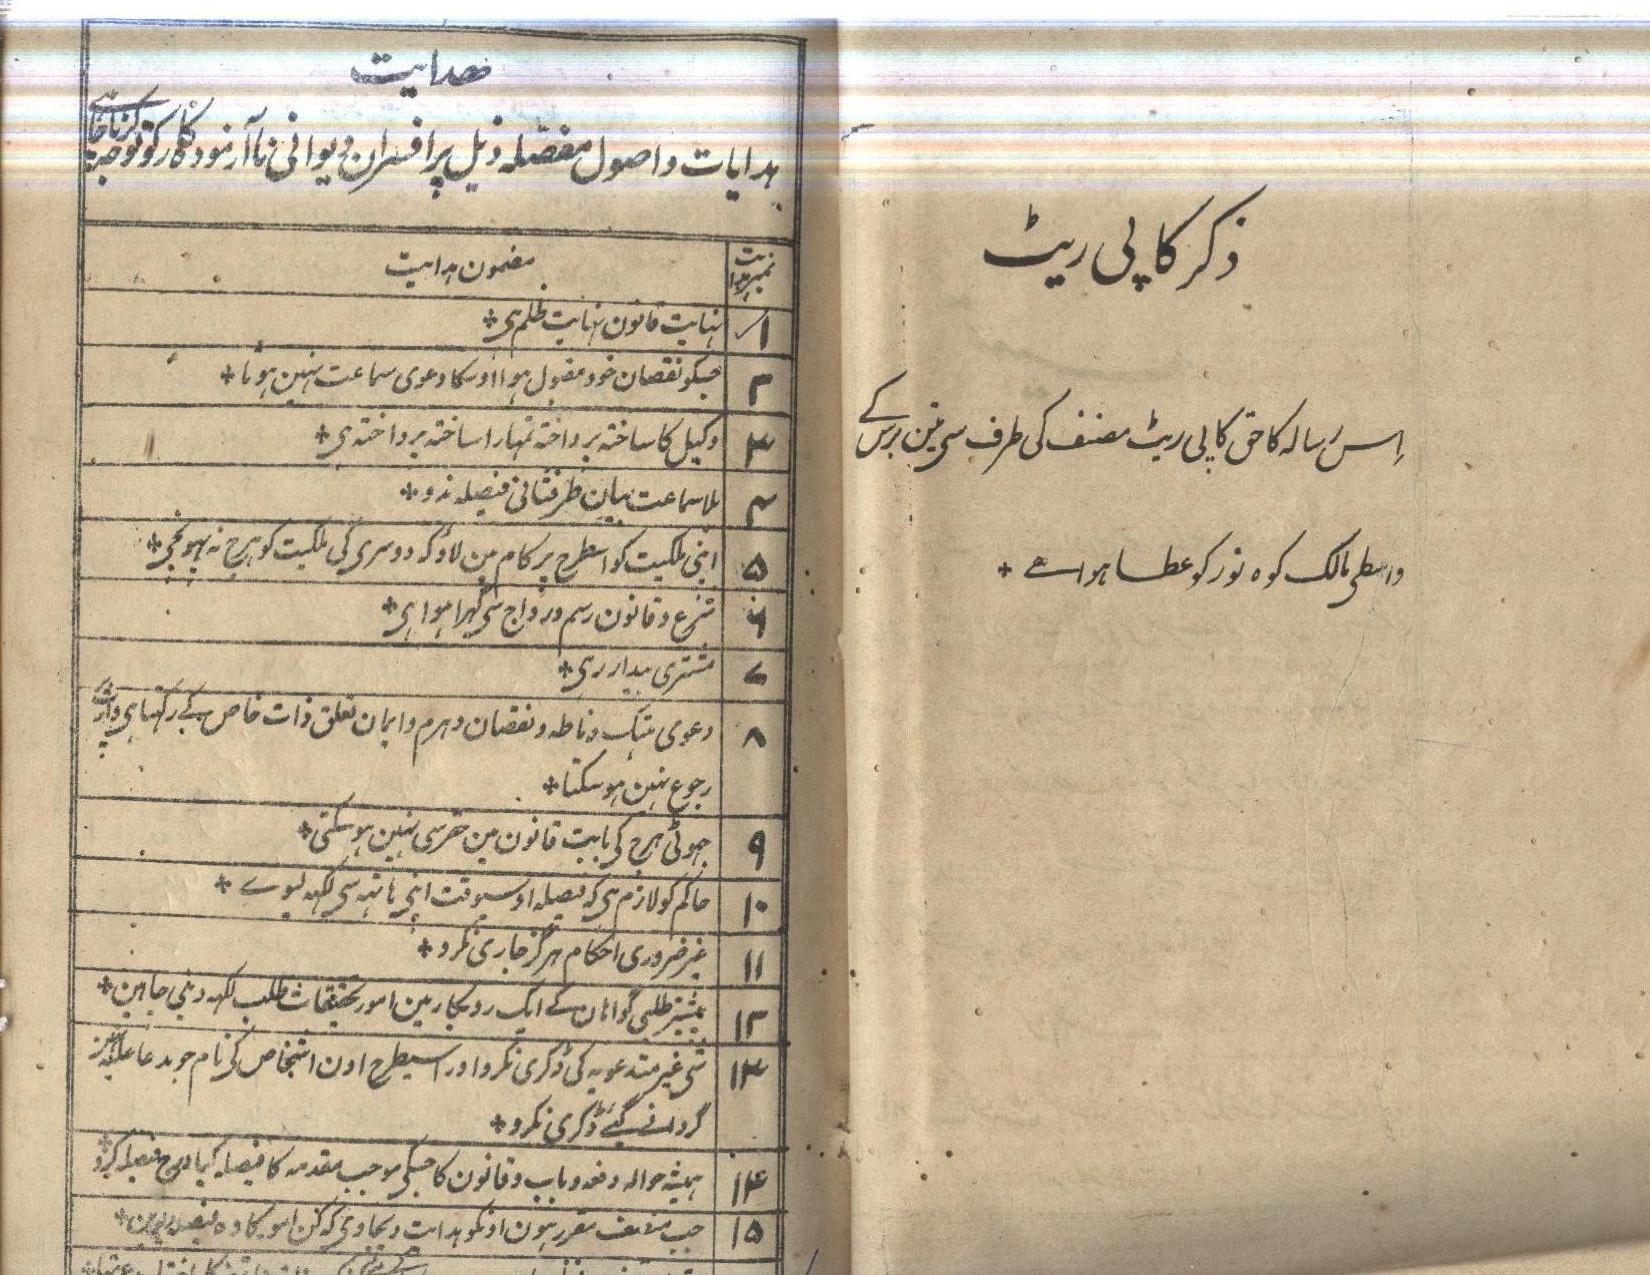 ذکر کاپی ریٹ
اِس رسالہ کا حق کاپی ریٹ مصنف کی طرف سی تین برس کے
واسطی مالک کوہ نور کو عطا ہوا ہے
ہدایت
ہدایات و اصول مفصلہ ذیل پر افسران دیوانی نا آزمودہ کار کو توجہ کرنا چاہئے
نمبر ہدایت مضمون ہدایت
۱ نہایت قانون نہایت ظلم ہی
۲ جسکو نقصان خود مقبول ہوا اوسکا دعوی سماعت نہین ہوتا
۳ وکیل کا ساختہ پرداختہ تمہارا ساختہ پرداختہ ہی
۴ بلا سماعت بیان طرفثانی فیصلہ ندو
۵ اپنی ملکیت کو اسطرح پر کام مین لاؤ کہ دوسری کی ملکیت کو ہرج نہ پہونچی
۶ شرع و قانون رسم و رواج سی گہرا ہوا ہی
۷ مشتری بیدار رہی
۸ دعوی ہتک و ناطہ و نقصان دہرم و ایمان تعلق ذات خاص کے رکہتا ہی وارث پر
رجوع نہین ہو سکتا
۹ جہوٹی ہرج کی بابت قانون مین حقرسی نہین ہو سکتی
۱۰ حاکم کو لازم ہی کہ فیصلہ اوسیوقت اپنی ہاتہہ سی لکہہ لیوے
۱۱ غیر ضروری احکام ہرگز جاری نکرو
۱۲ پیشتر طلبی گواہان کے ایک روبکار مین امور تحقیقات طلب لکہہ دینی چاہین
۱۳ شی غیر متدعویہ کی ڈگری نکرو اور اسیطرح اون اشخاص کی نام جو مدعا علیہ
گردانے گیئے ڈگری نکرو
۱۴ ہمیشہ حوالہ دفعہ و باب و قانون کا جسکی موجب مقدمہ کا فیصلہ کیا درج فیصلہ کرو
۱۵ جب منصف مقرر ہون اونکو ہدایت دیجاوی کہ کن امور کا وہ فیصلہ